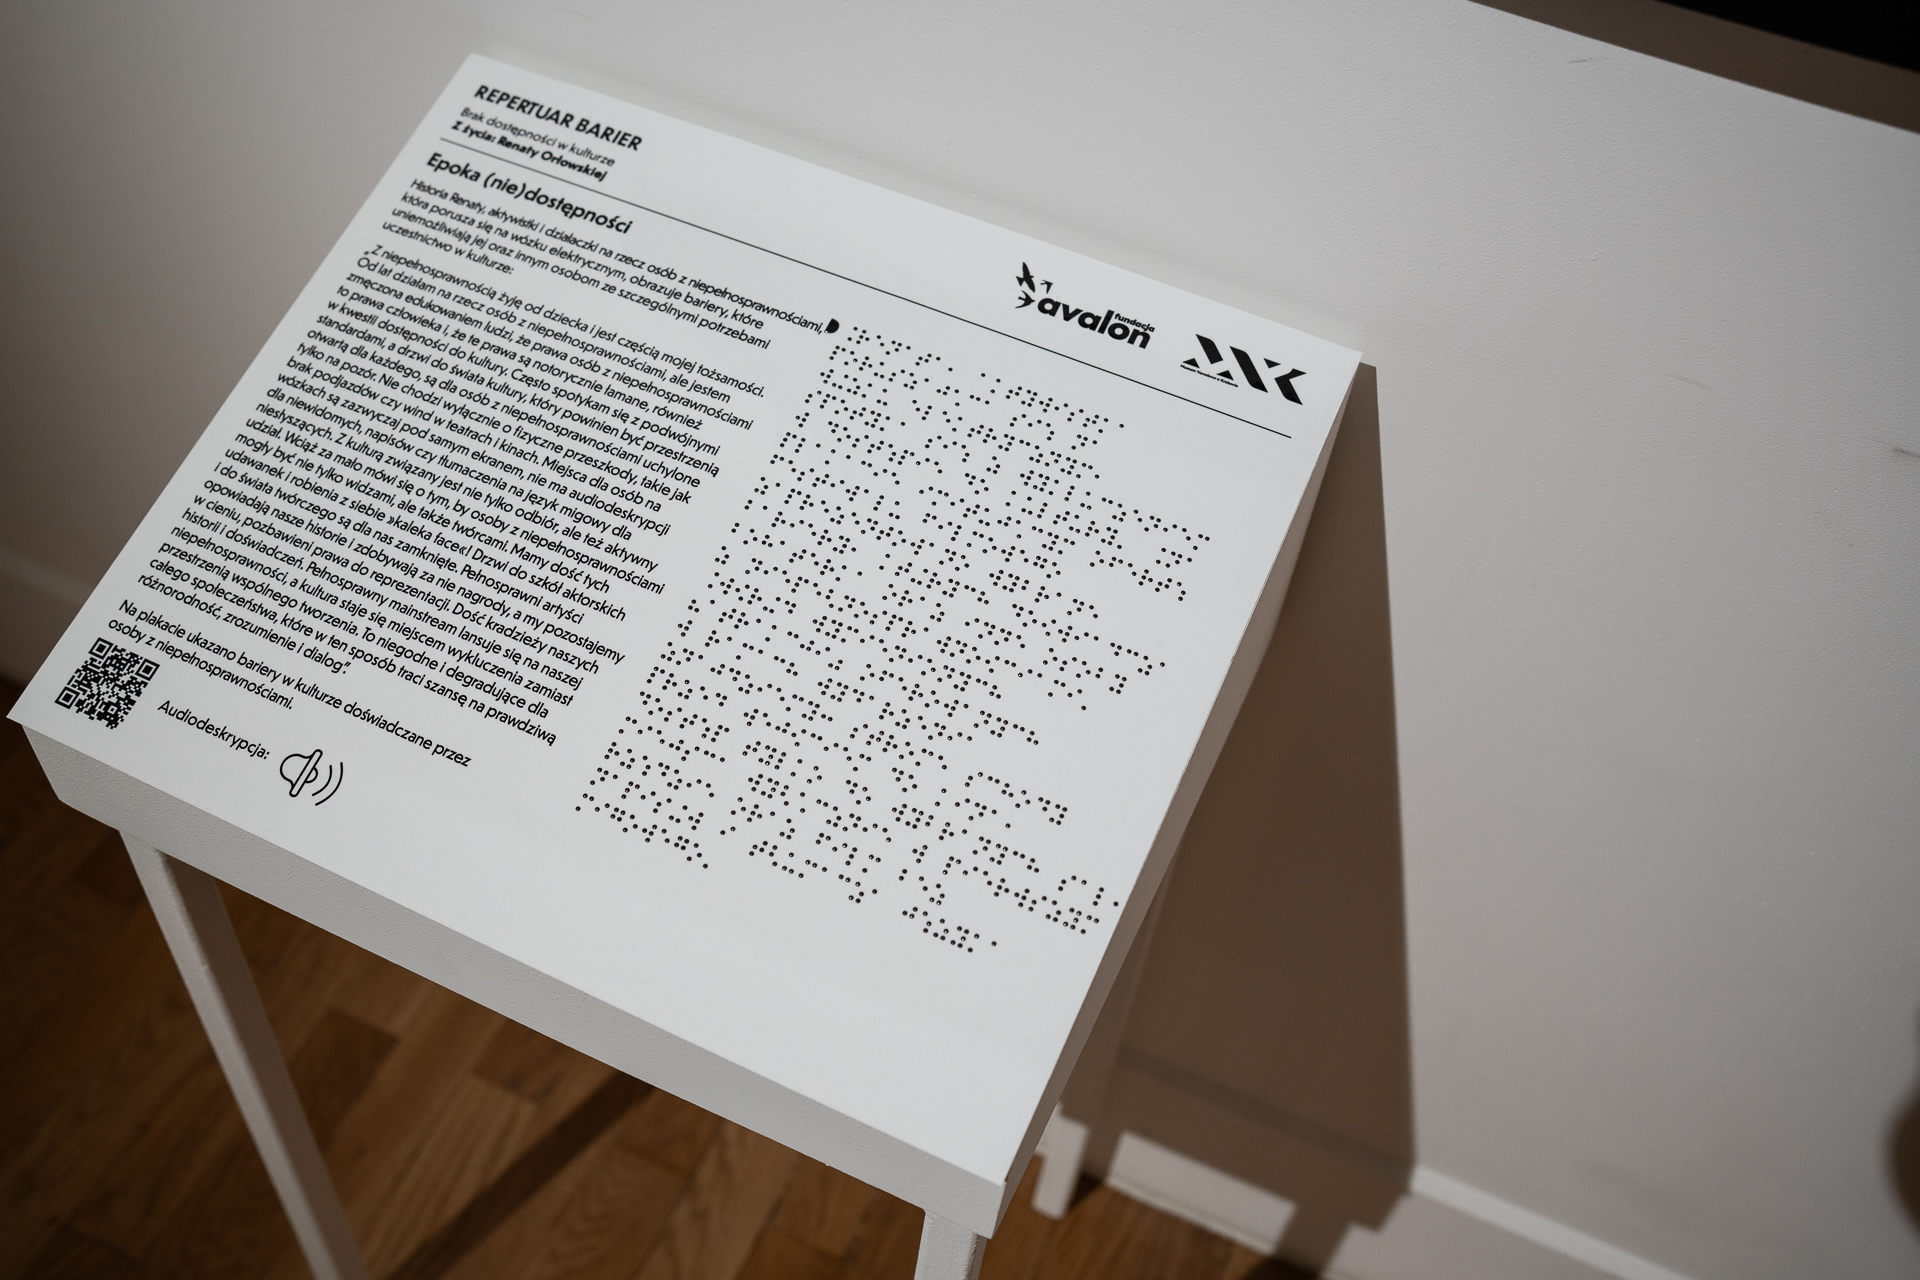 REPERTUAR BARIER
Brak dostępności w kulturze
Z życia: Renaty Orłowskiej
Epoka (nie)dostępności
Historia Renaty, aktywistki i działaczki na rzecz osób z niepełnosprawnościami,
która porusza się na wózku elektrycznym, obrazuje bariery, które
uniemożliwiają jej oraz innym osobom ze szczególnymi potrzebami
uczestnictwo w kulturze:
„Z niepełnosprawnością żyję od dziecka i jest częścią mojej tożsamości.
Od lat działam na rzecz osób z niepełnosprawnościami, ale jestem
zmęczona edukowaniem ludzi, że prawa osób z niepełnosprawnościami
to prawa człowieka i, że te prawa są notorycznie łamane, również
w kwestii dostępności do kultury. Często spotykam się z podwójnymi
standardami, a drzwi do świata kultury, który powinien być przestrzenią
otwartą dla każdego, są dla osób z niepełnosprawnościami uchylone
tylko na pozór. Nie chodzi wyłącznie o fizyczne przeszkody, takie jak
brak podjazdów czy wind w teatrach i kinach. Miejsca dla osób na
wózkach są zazwyczaj pod samym ekranem, nie ma audiodeskrypcji
dla niewidomych, napisów czy tłumaczenia na język migowy dla
niesłyszących. Z kulturą związany jest nie tylko odbiór, ale też aktywny
udział. Wciąż za mało mówi się o tym, by osoby z niepełnosprawnościami
mogły być nie tylko widzami, ale także twórcami. Mamy dość tych
udawanek i robienia z siebie »kaleka face«! Drzwi do szkół aktorskich
i do świata twórczego są dla nas zamknięte. Pełnosprawni artyści
opowiadają nasze historie i zdobywają za nie nagrody, a my pozostajemy
w cieniu, pozbawieni prawa do reprezentacji. Dość kradzieży naszych
historii i doświadczeń. Pełnosprawny mainstream lansuje się na naszej
niepełnosprawności, a kultura staje się miejscem wykluczenia zamiast
przestrzenią wspólnego tworzenia. To niegodne i degradujące dla
całego społeczeństwa, które w ten sposób traci szansę na prawdziwą
różnorodność, zrozumienie i dialog”.
Na plakacie ukazano bariery w kulturze doświadczane przez
osoby z niepełnosprawnościami.
Audiodeskrypcja:
fundacja
avalon
MNK